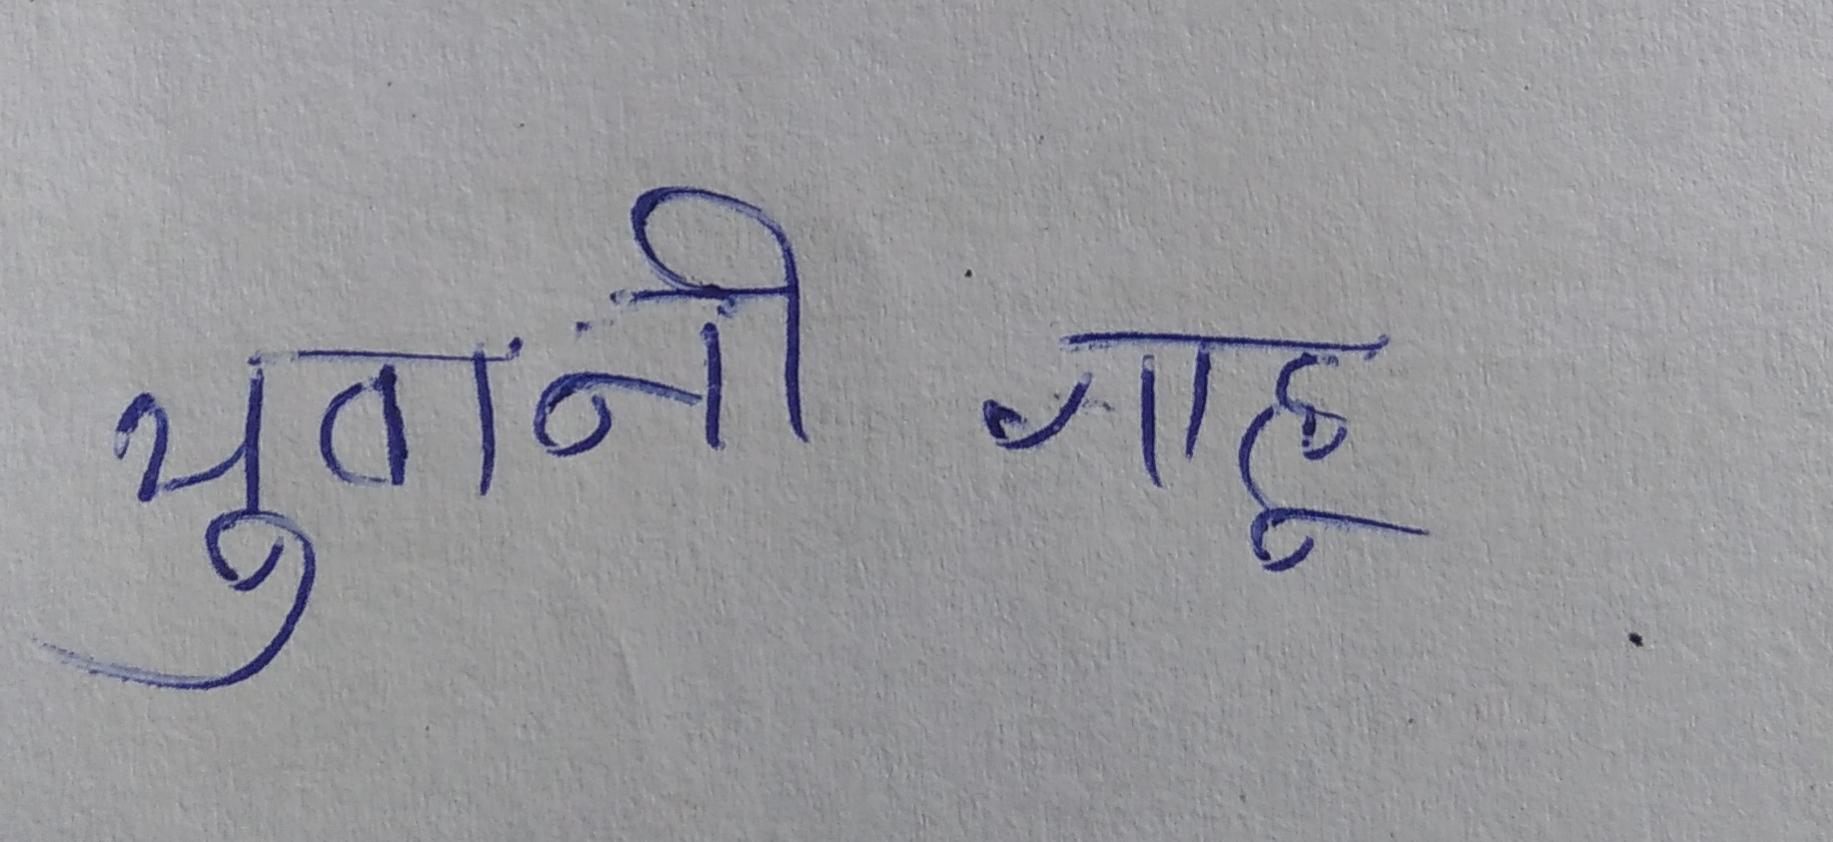 भुवानी साहू